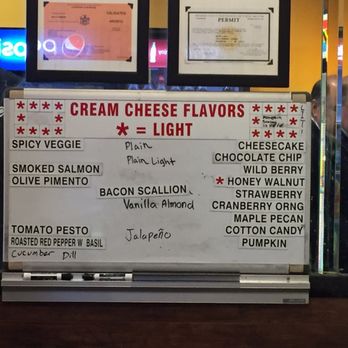 pepsi
PERMIT
CREAM CHEESE FLAVORS
* = LIGHT
SPICY VEGGIE
SMOKED SALMON
OLIVE PIMENTO
TOMATO PESTO
ROASTED RED PEPPER W BASIL
Cucumber Dill
Plain
Plain Light
BACON SCALLION
Vanilla Almond
Jalapeño
CHEESECAKE
CHOCOLATE CHIP
WILD BERRY
* HONEY WALNUT
STRAWBERRY
CRANBERRY ORNG
MAPLE PECAN
COTTON CANDY
PUMPKIN